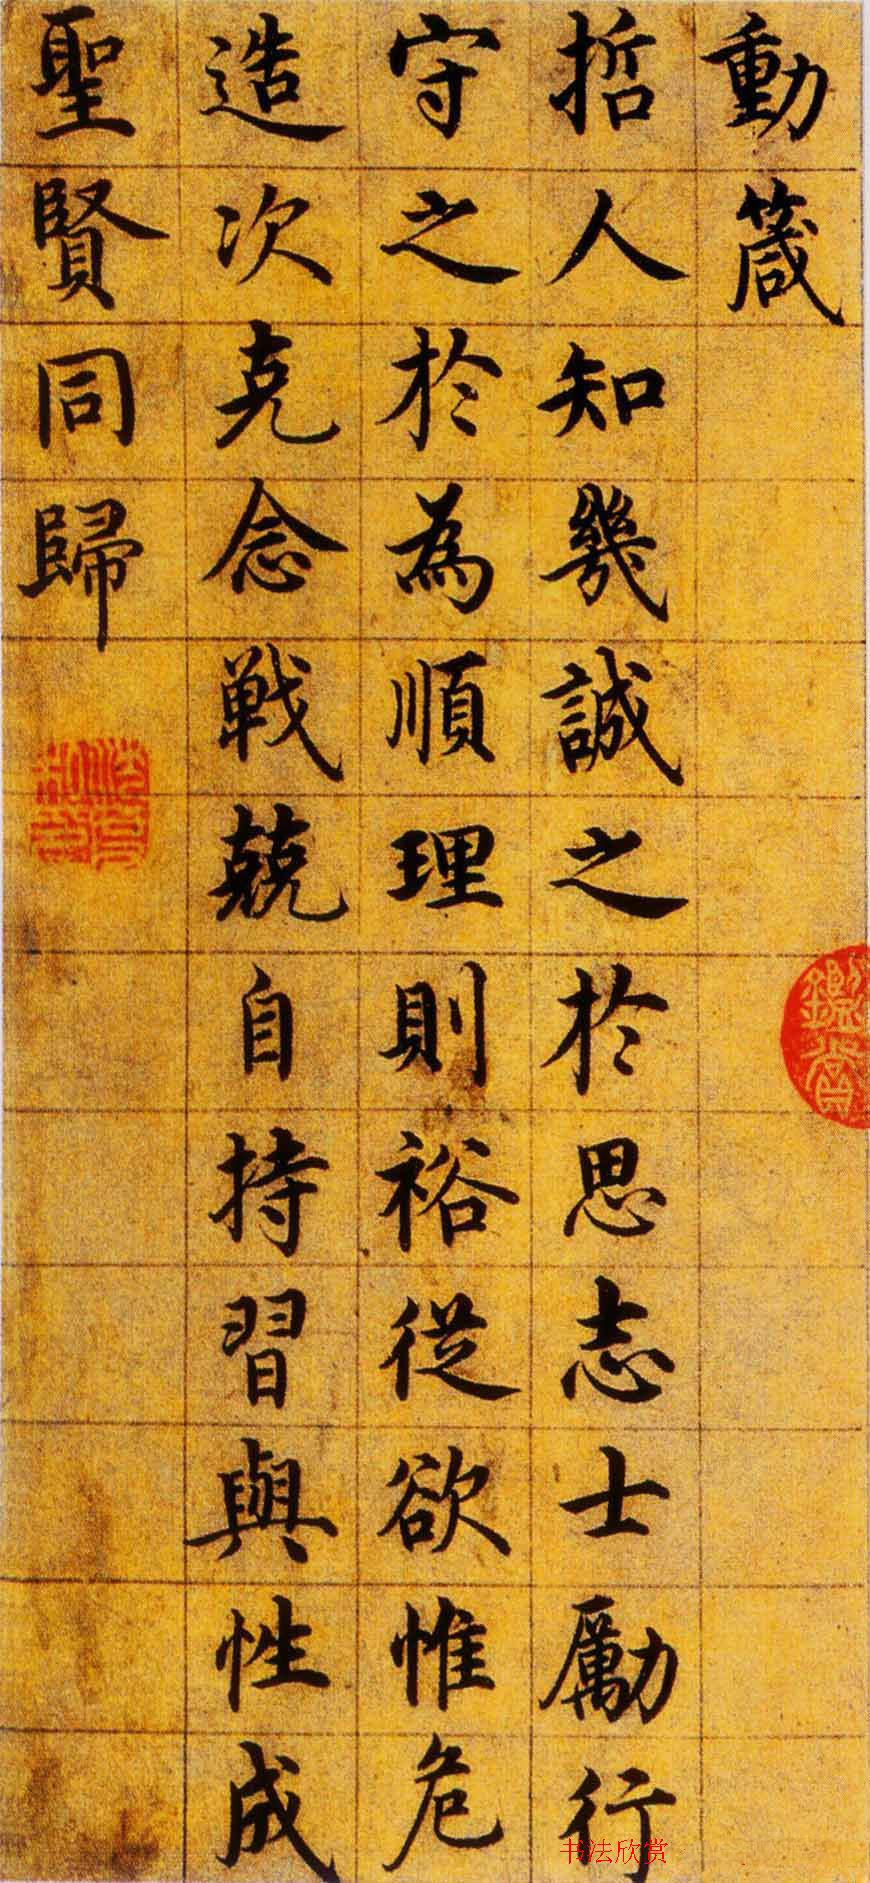 動箴
哲人知幾誠之於思志士勵行
守之於為順理則裕從欲惟危
造次克念戰兢自持習與性成
聖賢同歸
鑑賞
书法欣赏